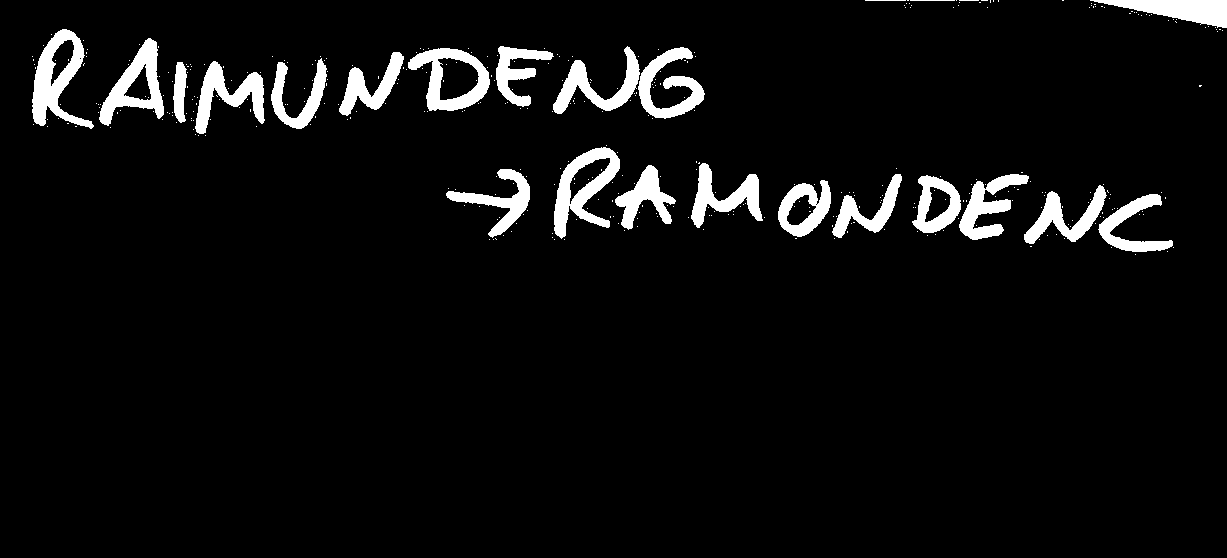 RAIMUNDENG
→ RAMONDENC